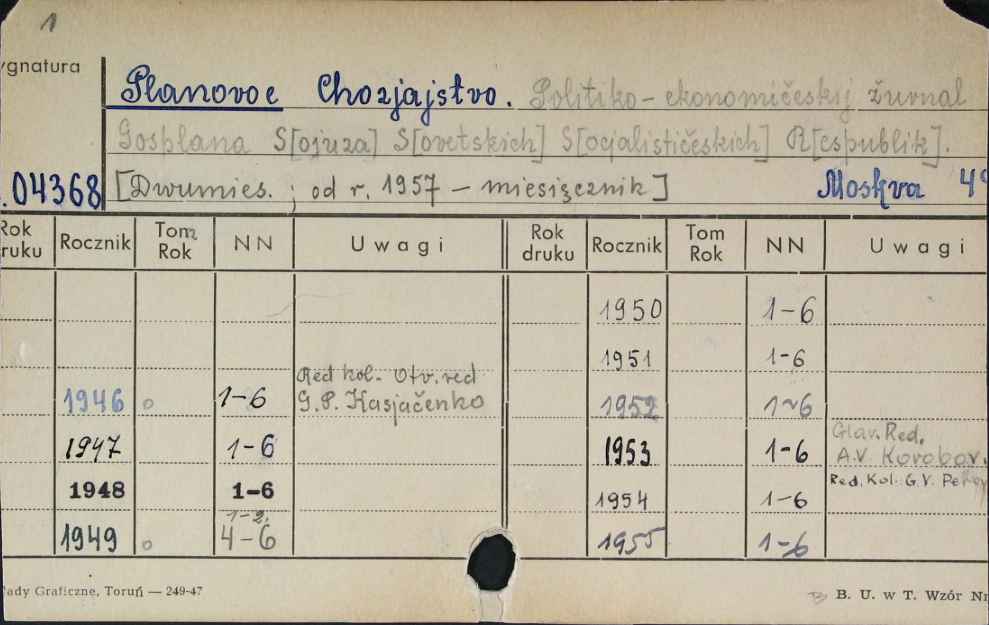 1
ygnatura
Planovoe Chozjajstvo. Politiko-ekonomičeskij žurnal
Gosplana S[ojuza] S[ovetskich] S[ocjalističeskich] R[espublik].
.04368 [Dwumies. ; od r. 1957 – miesięcznik] Moskva
Rok ruku Rocznik Tom Rok NN Uwagi Rok druku Rocznik Tom Rok NN Uwagi
1950 1-6
1951 1-6
Red kol. Otv. red
1946 o 1-6 G.P. Kasjačenko 1952 1-6
Glav. Red.
1947 1-6 1953 1-6 A.V. Korobov.
Red. Kol. G.V.
1948 1-6 1954 1-6
1-2,
1949 o 4-6 1955 1-6
ady Graficzne, Toruń — 249-47 B. U. w T. Wzór Nr